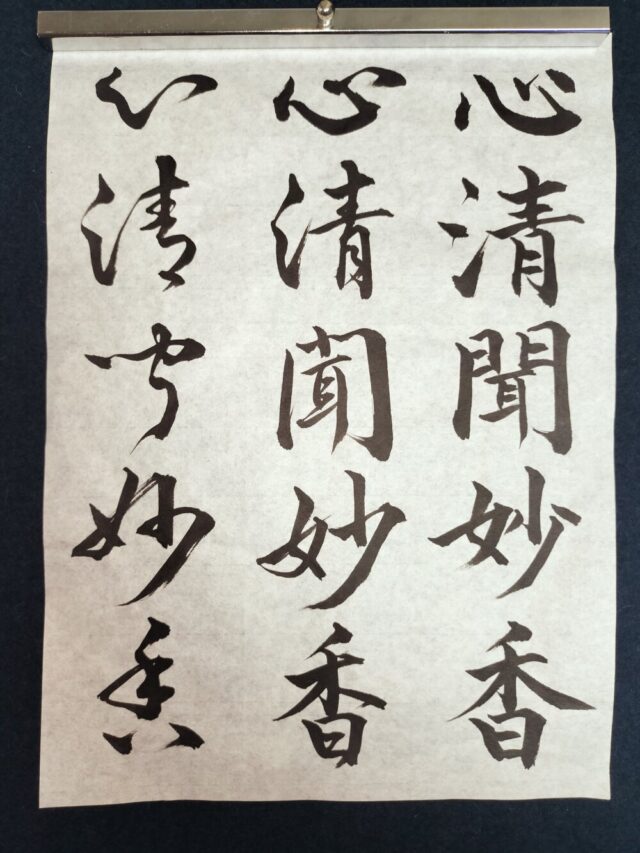 心清聞妙香
心清聞妙香
心清聞妙香